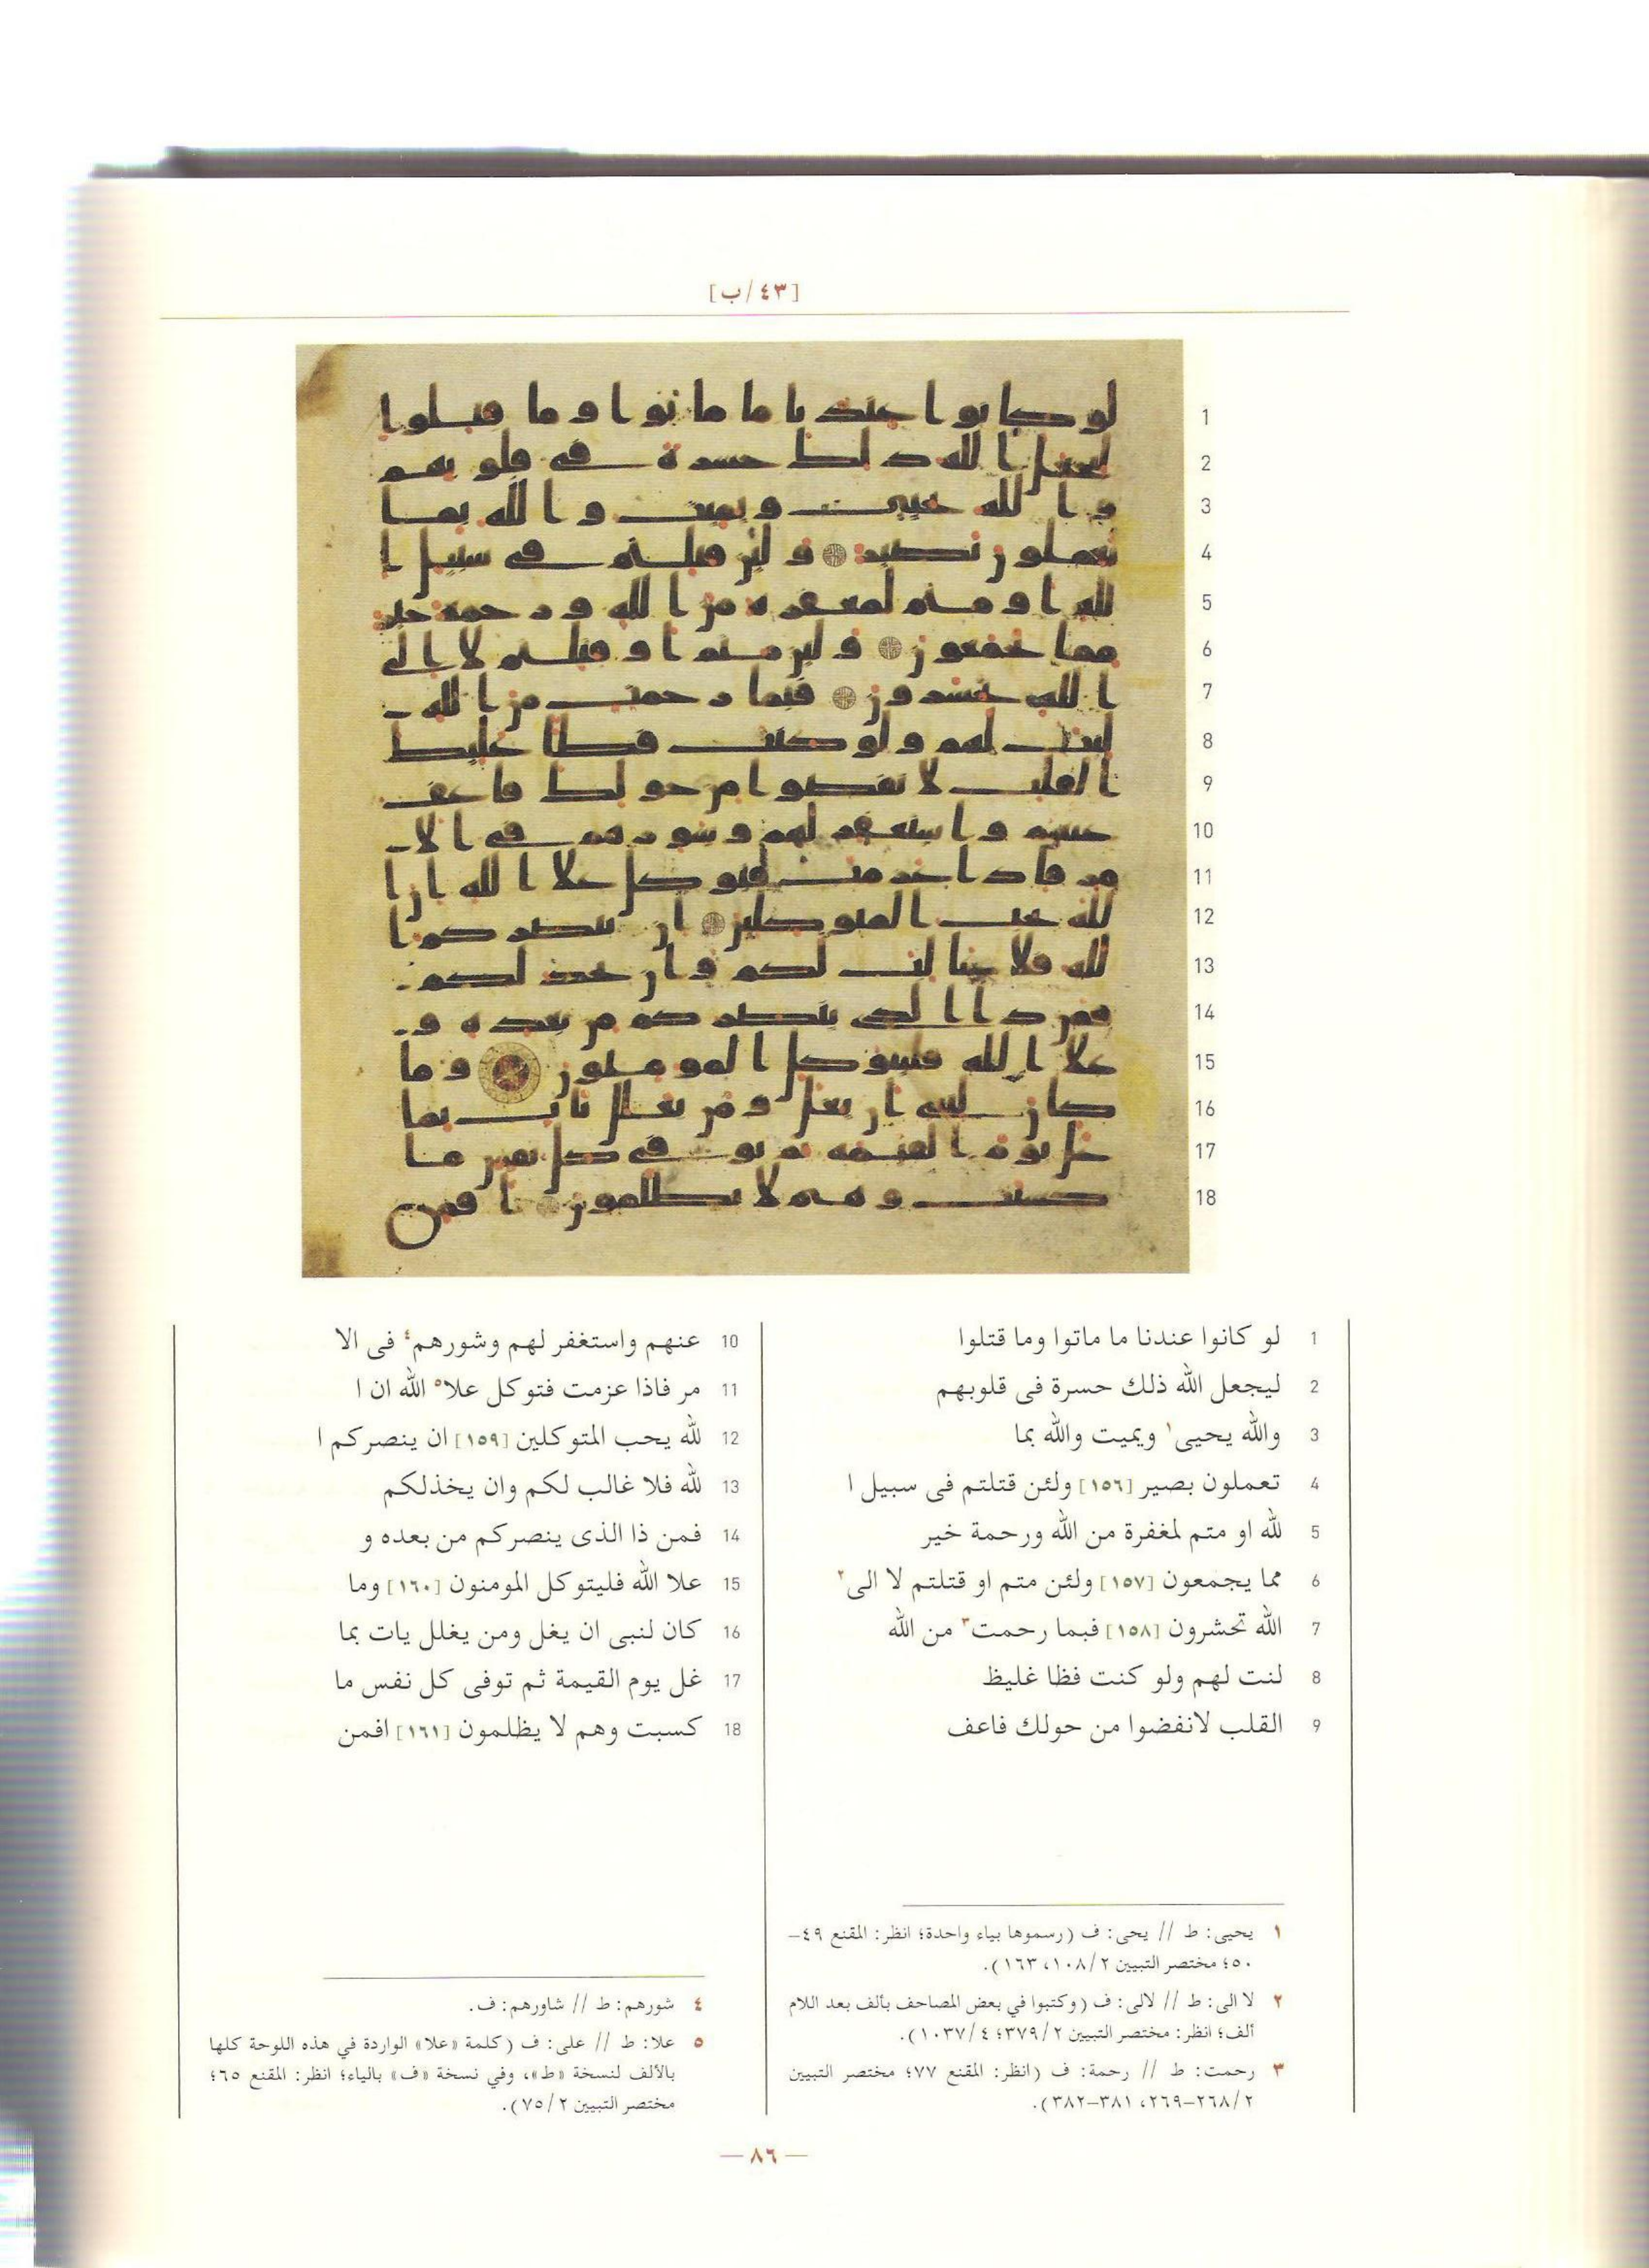 [٤٣/ب]
1 لو كانوا عندنا ما ماتوا وما قتلوا
2 ليجعل الله ذلك حسرة فى قلوبهم
3 والله يحيى١ ويميت والله بما
4 تعملون بصير [١٥٦] ولئن قتلتم فى سبيل ا
5 لله او متم لمغفرة من الله ورحمة خير
6 مما يجمعون [١٥٧] ولئن متم او قتلتم لا الى٢
7 الله تحشرون [١٥٨] فبما رحمت٣ من الله
8 لنت لهم ولو كنت فظا غليظ
9 القلب لانفضوا من حولك فاعف
10 عنهم واستغفر لهم وشورهم٤ فى الا
11 مر فاذا عزمت فتوكل علا٥ الله ان ا
12 لله يحب المتوكلين [١٥٩] ان ينصركم ا
13 لله فلا غالب لكم وان يخذلكم
14 فمن ذا الذى ينصركم من بعده و
15 علا الله فليتوكل المومنون [١٦٠] وما
16 كان لنبى ان يغل ومن يغلل يات بما
17 غل يوم القيمة ثم توفى كل نفس ما
18 كسبت وهم لا يظلمون [١٦١] افمن
١ يحيى: ط // يحى: ف (رسموها بياء واحدة؛ انظر: المقنع ٤٩–
٥٠؛ مختصر التبيين ١٠٨/٢، ١٦٣).
٢ لا الى: ط // لالى: ف (وكتبوا في بعض المصاحف بألف بعد اللام
ألف؛ انظر: مختصر التبيين ٣٧٩/٢؛ ١٠٣٧/٤).
٣ رحمت: ط // رحمة: ف (انظر: المقنع ٧٧؛ مختصر التبيين
٢٦٨/٢–٢٦٩، ٣٨١–٣٨٢).
٤ شورهم: ط // شاورهم: ف.
٥ علا: ط // على: ف (كلمة «علا» الواردة في هذه اللوحة كلها
بالألف لنسخة «ط»، وفي نسخة «ف» بالياء؛ انظر: المقنع ٦٥؛
مختصر التبيين ٧٥/٢).
— ٨٦ —